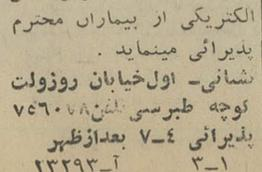 الکتریکی از بیماران محترم
پذیرائی مینماید .
نشانی_ اول خیابان روزولت
کوچه طبرسی تلفن ۷۵۶۰۷۸
پذیرائی ۴_۷ بعدازظهر
۱_۳ آ_۲۳۲۹۳